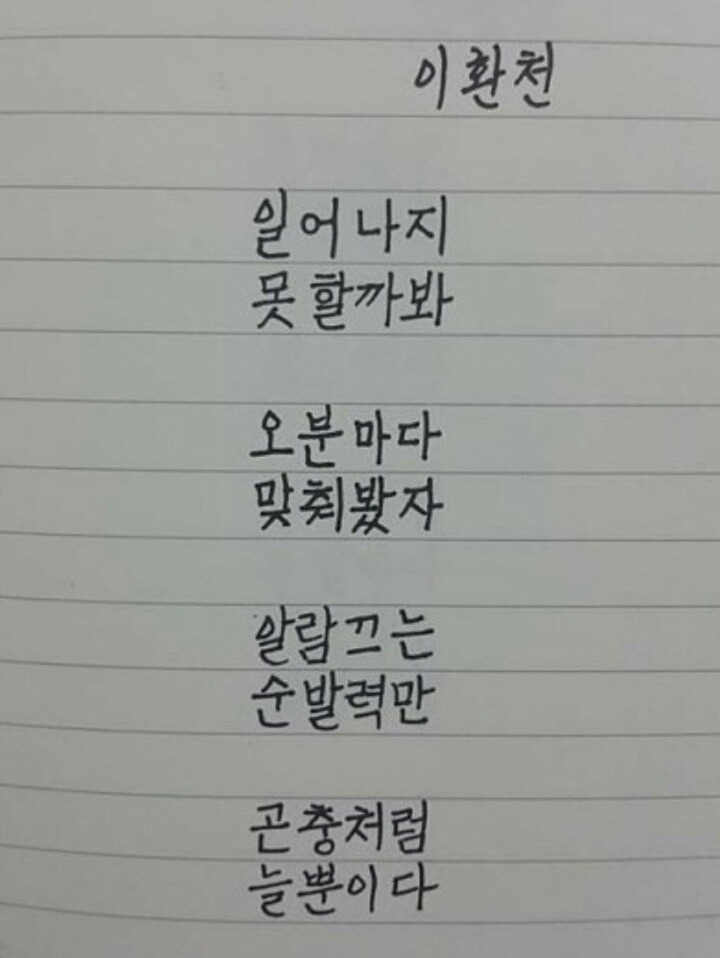 이환천
일어나지
못할까봐
오분마다
맞춰봤자
알람끄는
순발력만
곤충처럼
늘뿐이다